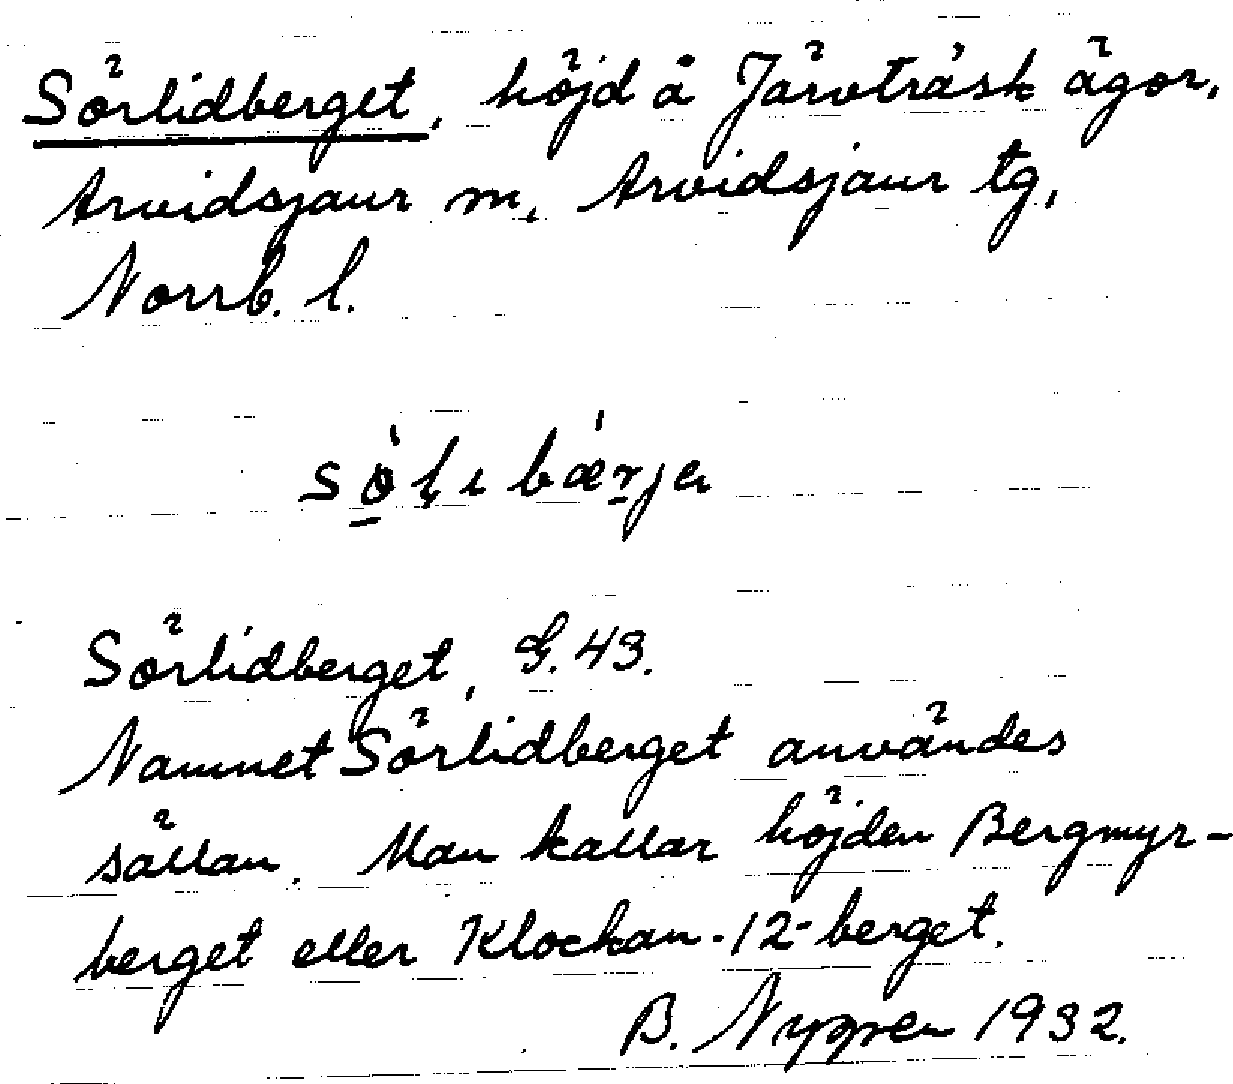 Sörlidberget, höjd å Järvträsk ägor,
Arvidsjaur sn, Arvidsjaur tg,
Norrb. l.
Sörlidberget, G. 43.
Namnet Sörlidberget användes
sällan. Man kallar höjden Bergmyr-
berget eller Klockan-12-berget.
B. 1932.